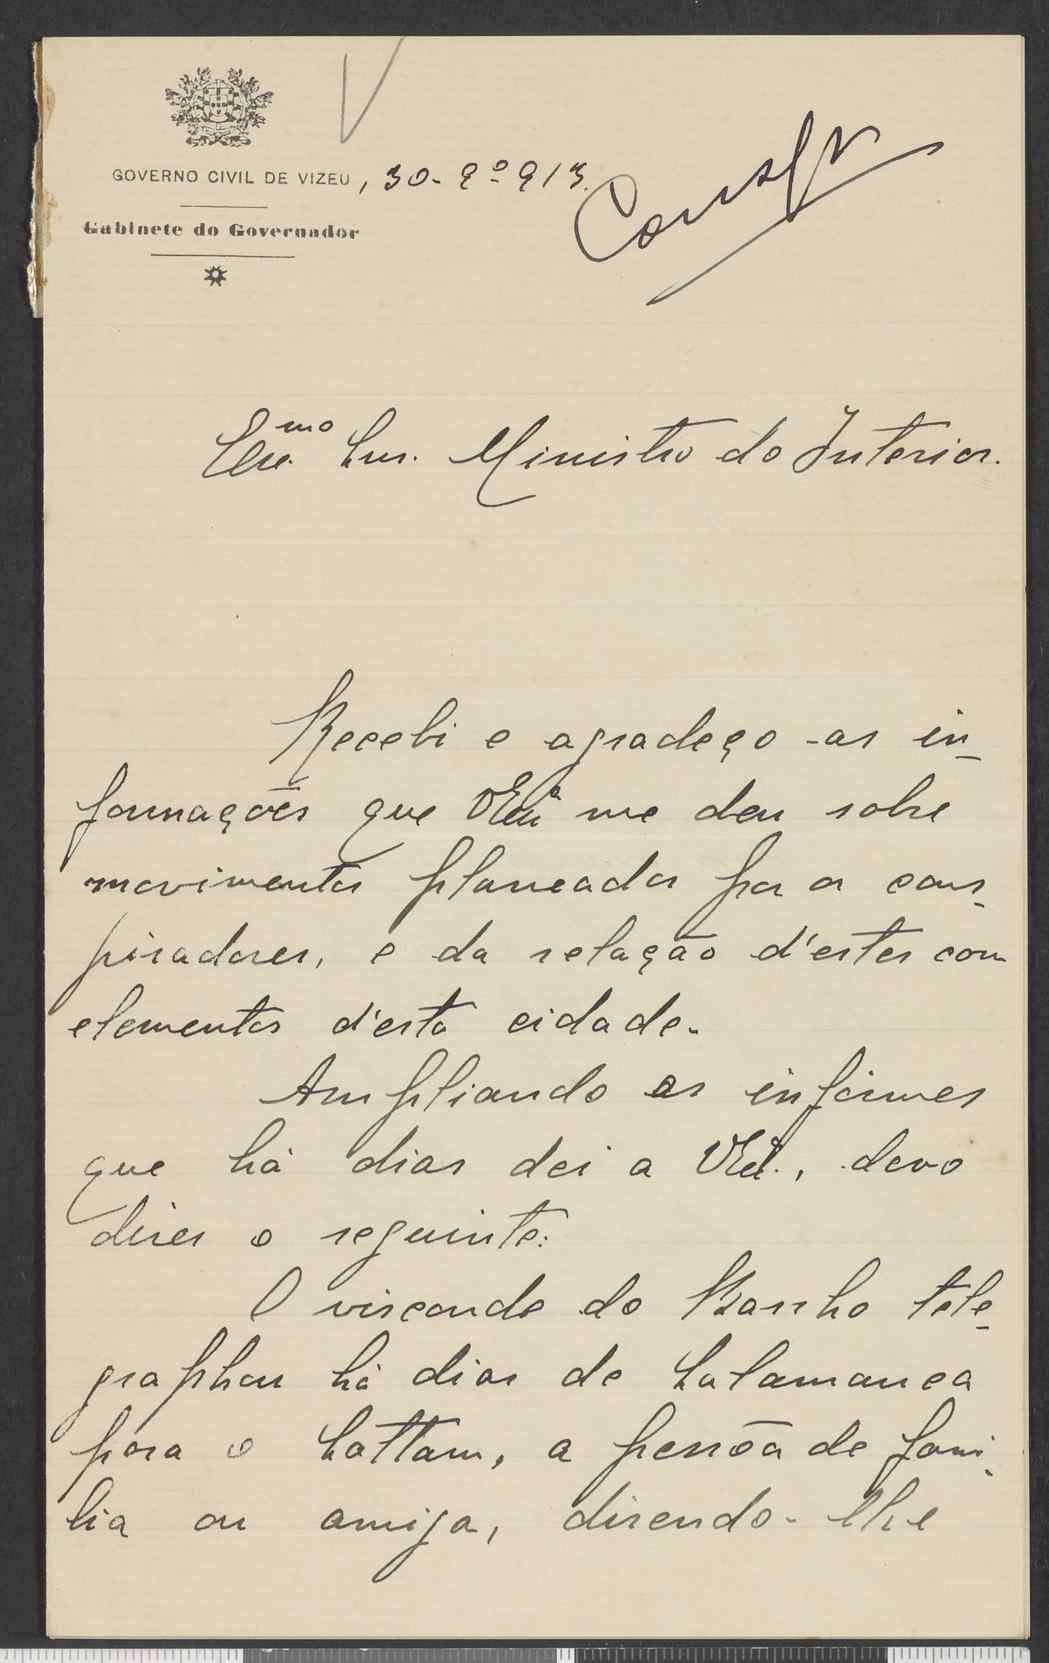 GOVERNO CIVIL DE VIZEU, 30-9º-913.
Gabinete do Governador
Exmo Snr. Ministro do Interior.
Recebi e agradeço as in-
formações que VExª me deu sobre
movimentos planeados por os cons-
piradores, e da relação d'estes com
elementos d'esta cidade.
Ampliando os informes
que há dias dei a VExª., devo
dizer o seguinte:
O visconde do Banho tele-
graphou há dias de Salamanca
para o Sattam, a pessôa de fami-
lia ou amiga, dizendo-lhe